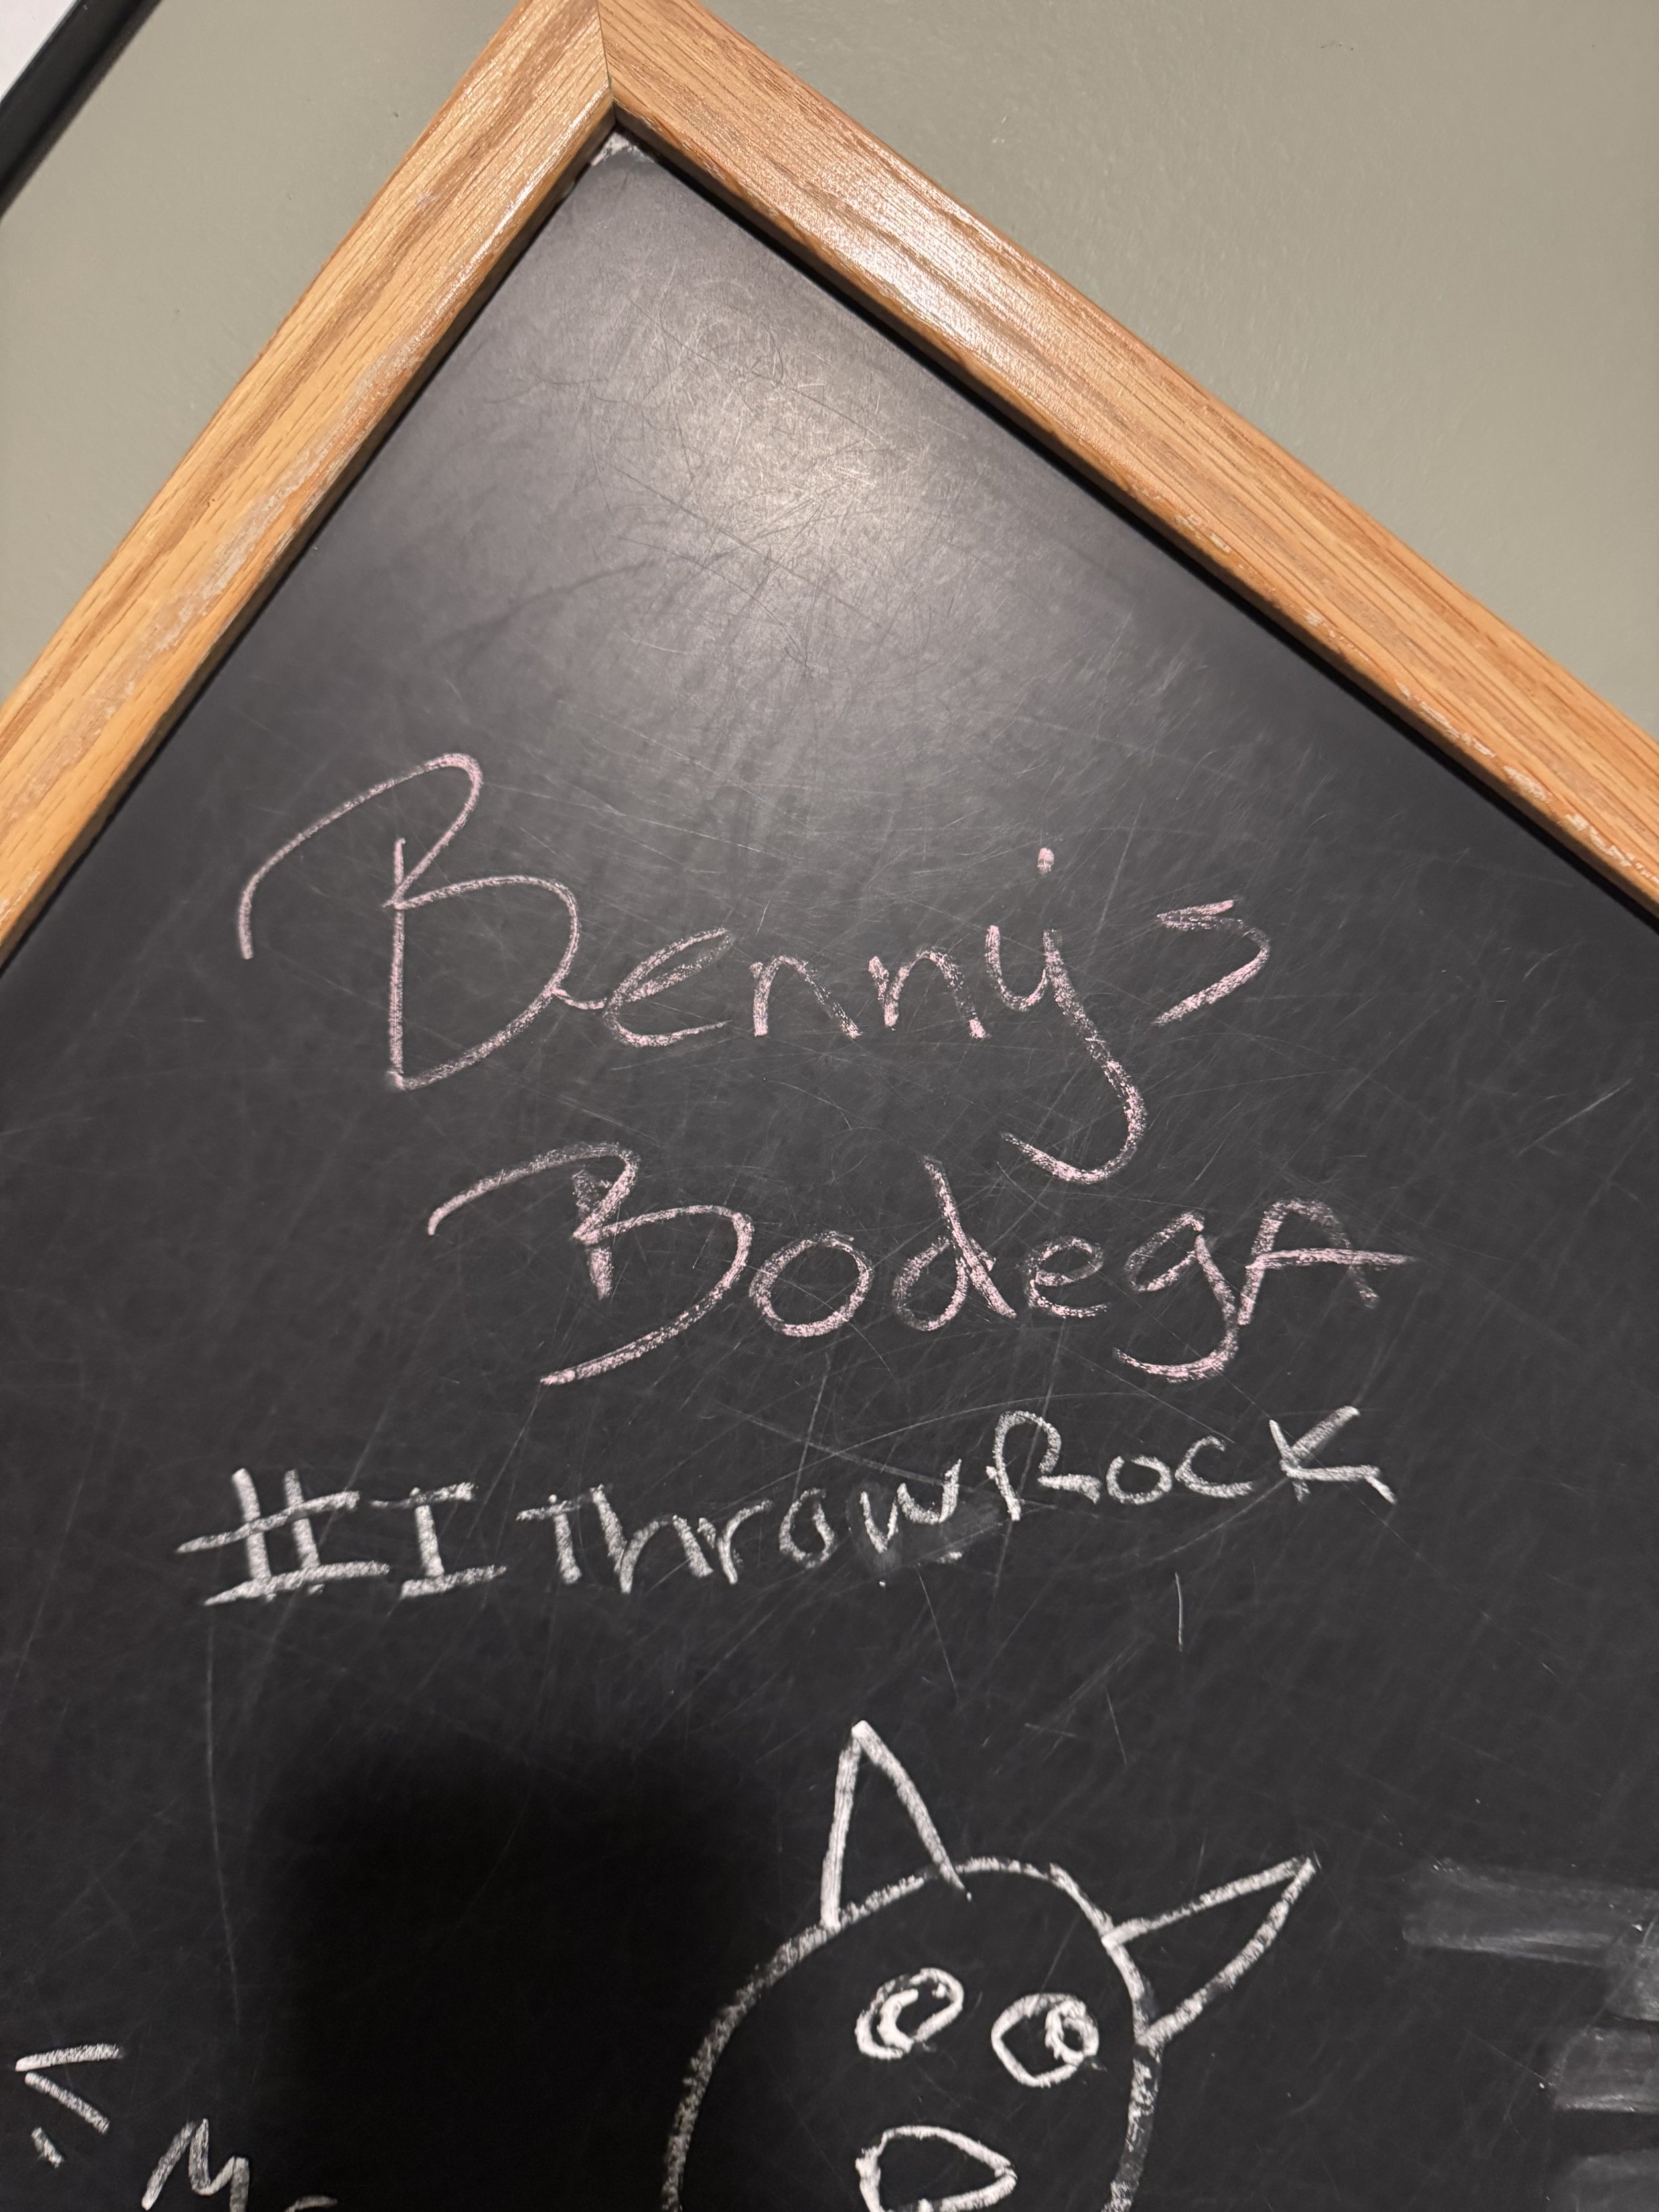 Bennys
BodegA
#IthrowRock